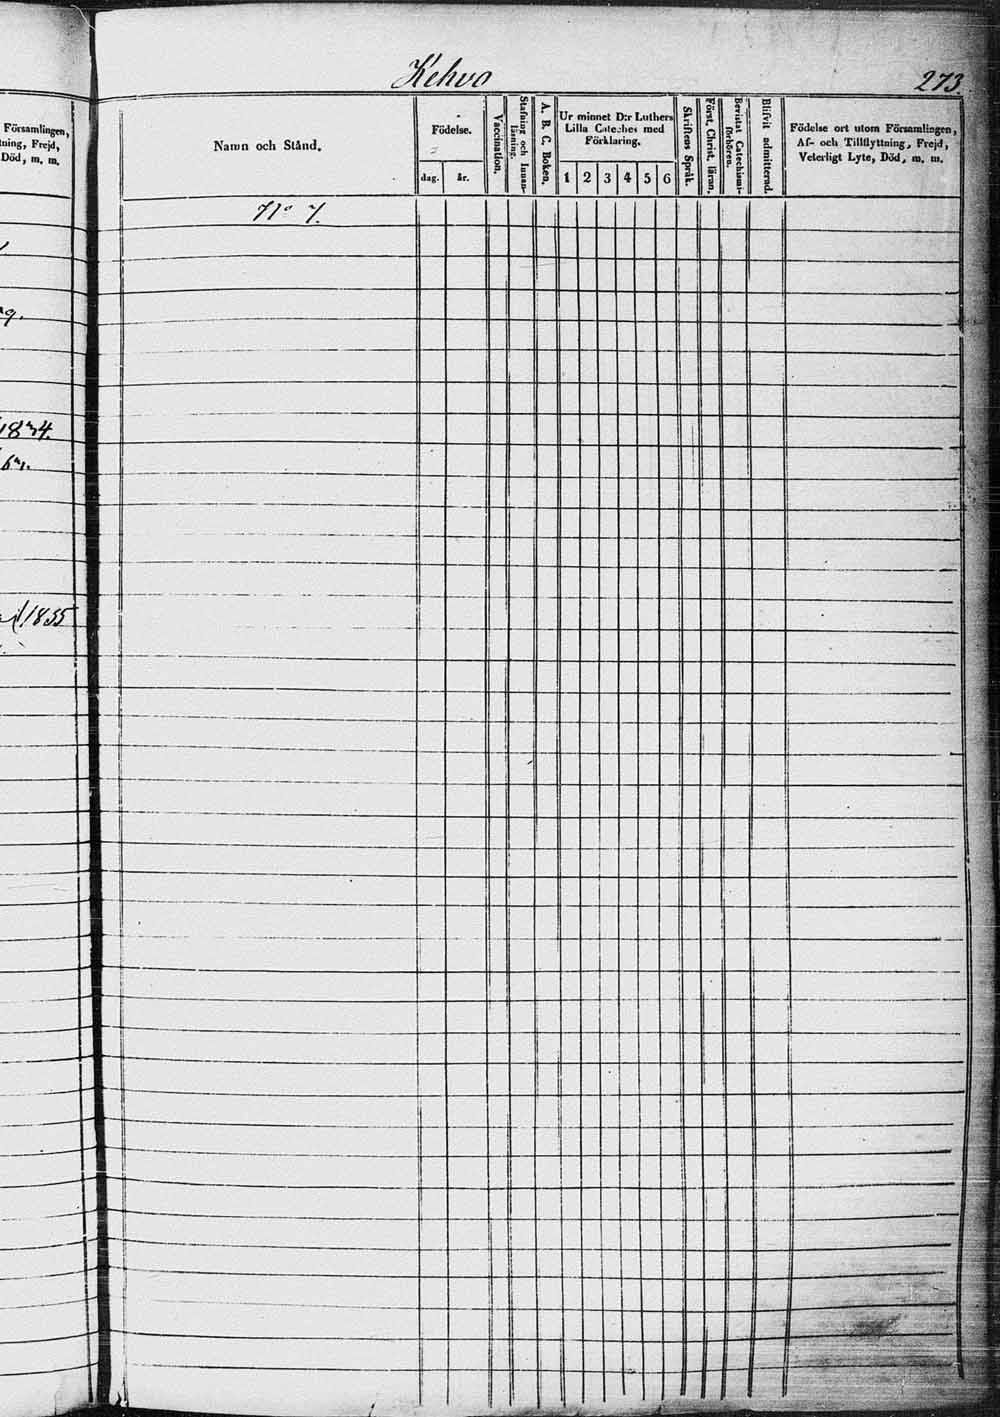 Kehvo
273.
Församlingen,
tning, Frejd,
Död, m. m.
Namn och Stånd.
Födelse.
dag.
år.
Vaccination.
Stafning och Innan-
läsning.
A. B. C. Boken.
Ur minnet D:r Luthers
Lilla Cateches med
Förklaring.
1 2 3 4 5 6
Skriftens Språk.
Först. Christ. läran.
Bevistat Catechismi-
förhören.
Blifvit admitterad.
Födelse ort utom Församlingen,
Af- och Tillflyttning, Frejd,
Veterligt Lyte, Död, m. m.
No 7.
1834.
1855